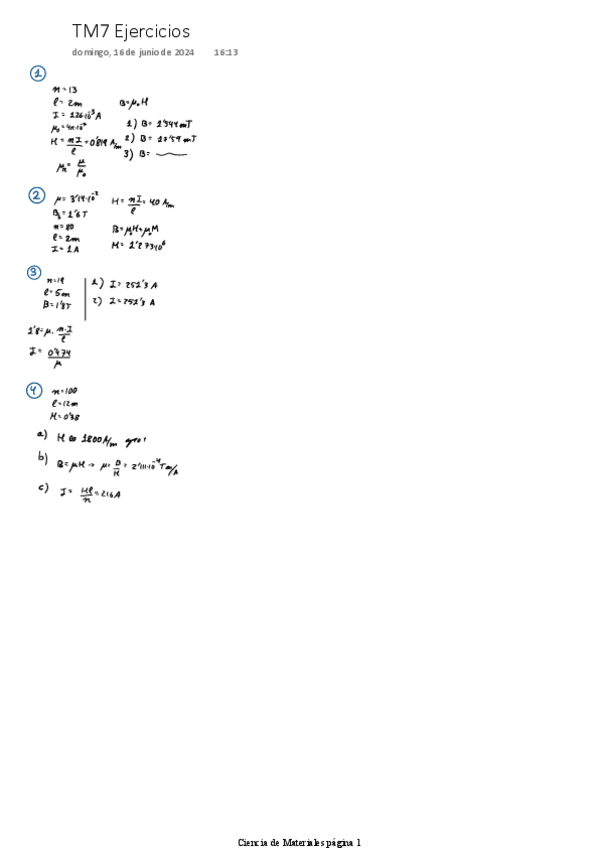 TM7 Ejercicios
domingo, 16 de junio de 2024 16:13
1
n=13
l=2m
I=126·10⁻³A
μ₀=4π·10⁻⁷
H=nI/l=0'819 A/m
μᵣ=μ/μ₀
B=μ₀H
1) B=1'544mT
2) B=10'59mT
3) B=
2
μ=3'14·10⁻²
Bₛ=1'6T
n=80
l=2m
I=1A
H=nI/l=40 A/m
B=μ₀H+μ₀M
M=1'273·10⁶
3
n=19
l=5m
B=1'8T
1'8=μ·n·I/l
I=0'474/μ
1) I=252'3 A
2) I=252'3 A
4
n=100
l=12m
a) H≈1800A/m
b) B=μH→μ=B/H=2'111·10⁻⁴Tm/A
c) I=Hl/n=216A
Ciencia de Materiales página 1